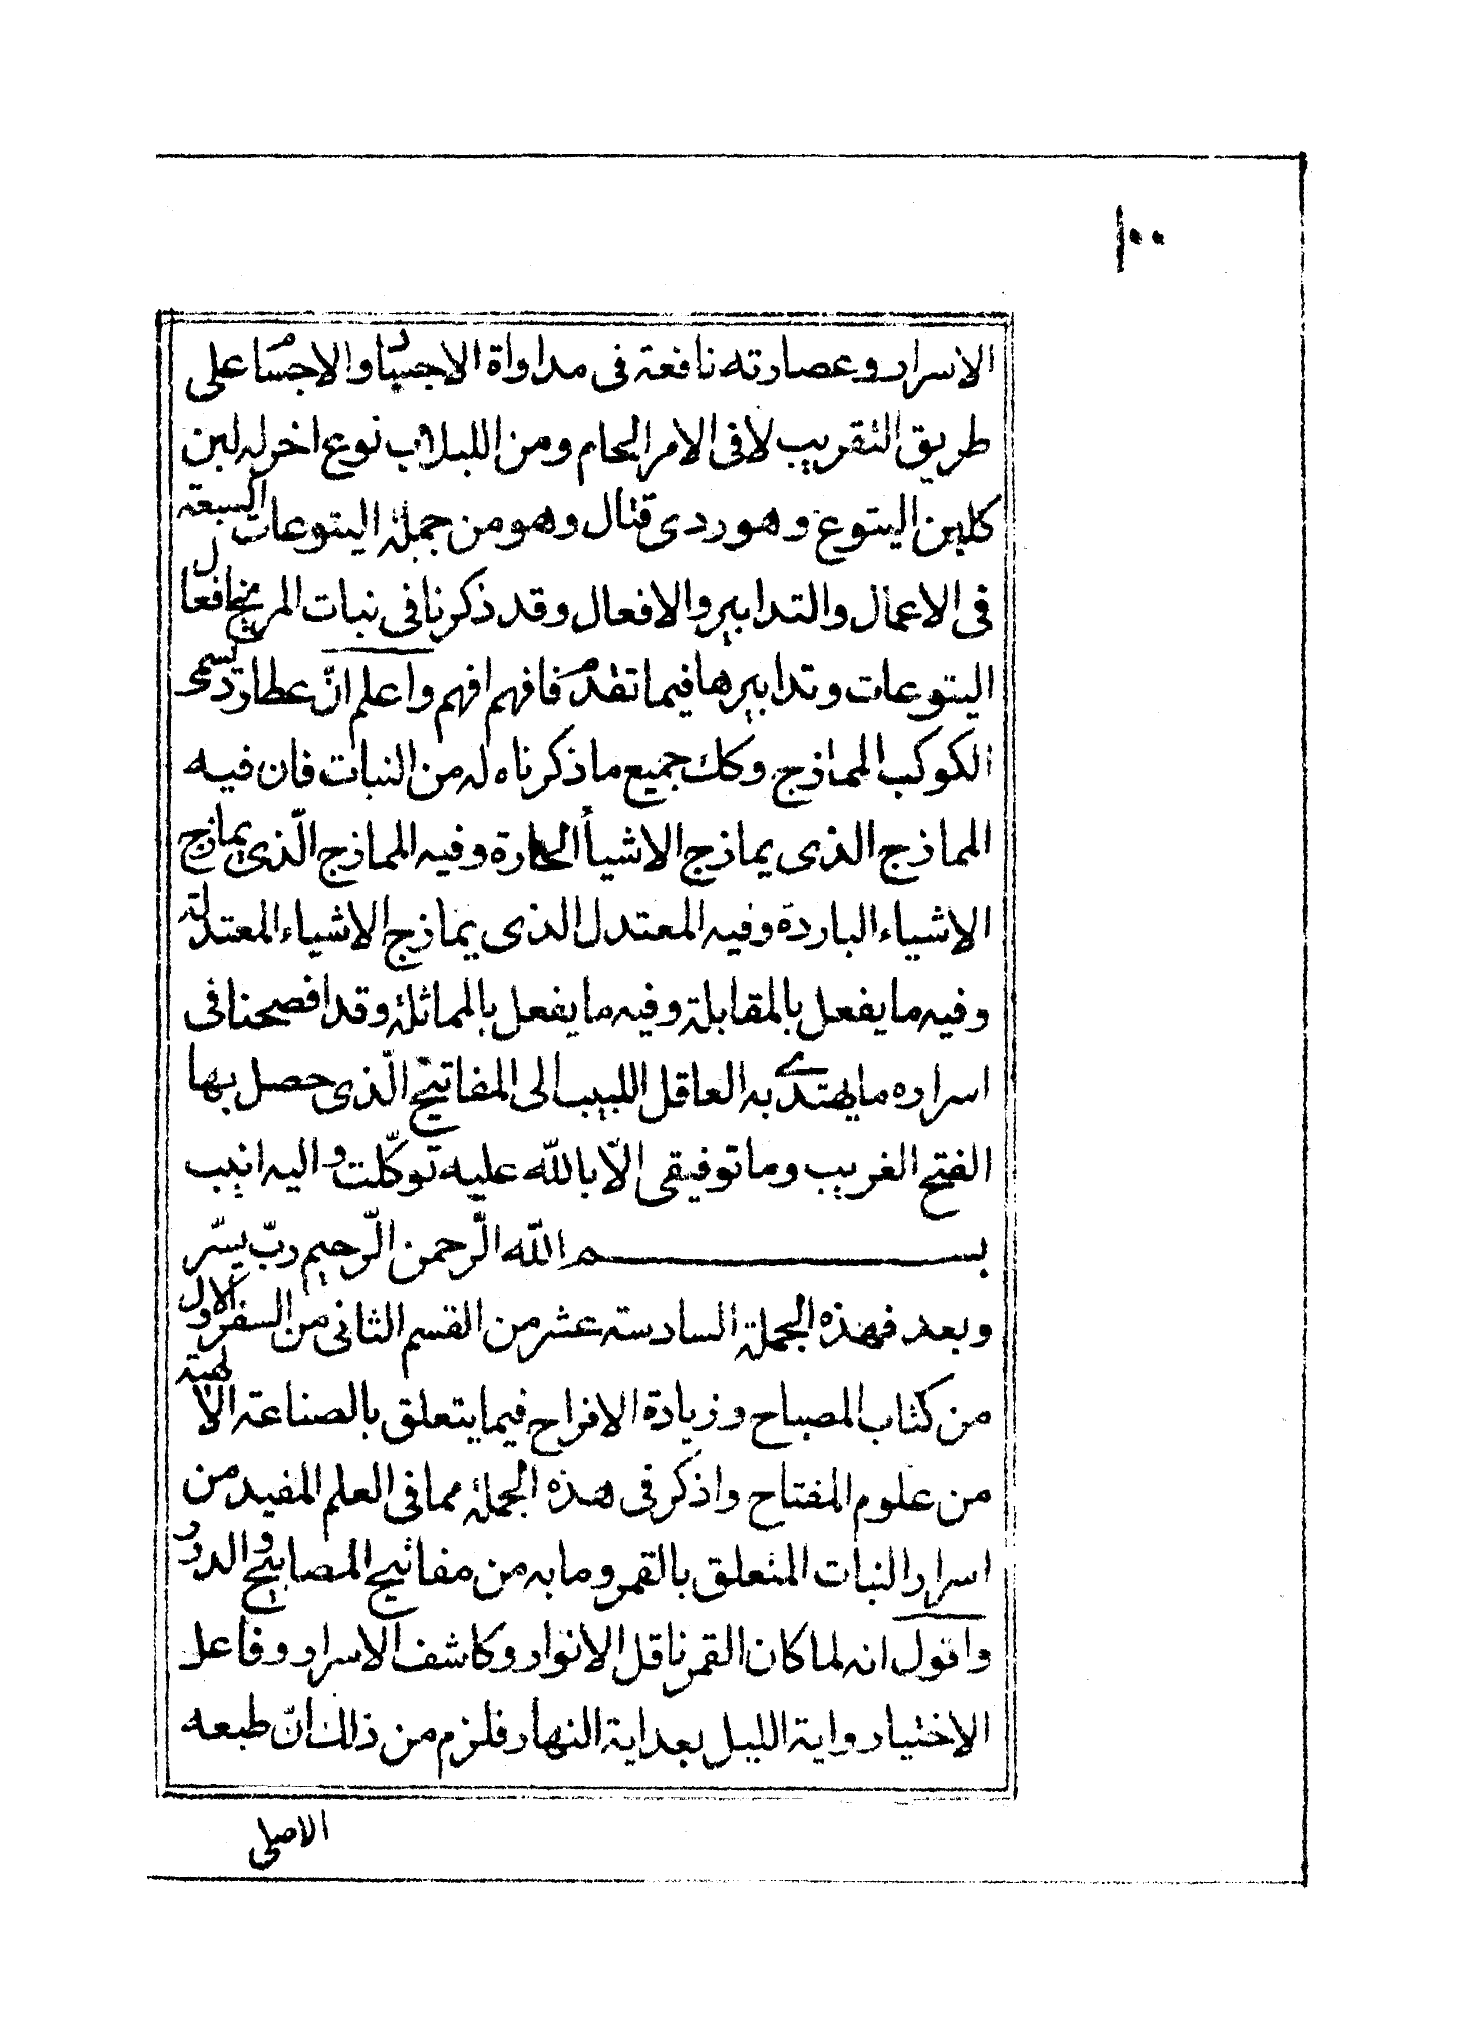 ١٠٠
الاسرار وعصارته نافعة فى مداواة الاجساد والاجسام على
طريق التقريب لا فى الامر الحام ومن اللبلاب نوع اخر له لبن
كلبن اليتوع وهو ردى قتال وهو من جملة اليتوعات السبعة
فى الاعمال والتدابير والافعال وقد ذكرنا فى نبات المريخ افعال
اليتوعات وتدابيرها فيما تقدم فافهم افهم واعلم انّ عطارد يسمى
الكوكب الممازج وكك جميع ماذكرناه له من النبات فان فيه
المماذج الذى يماذج الاشيأ الحارة وفيه المماذج الّذى يماذج
الاشياء الباردة وفيه المعتدل الذى يماذج الاشياء المعتدلة
وفيه ما يفعل بالمقابلة وفيه ما يفعل بالمماثلة وقد افصحنا فى
اسراره ما يهتدى به العاقل اللبيب الى المفاتيح الّذى حصل بها
الفتح الغريب وما توفيقى الّا بالله عليه توكّلت واليه انيب
بسم الله الرّحمن الرّحيم ربّ يسّر
وبعد فهذه الجملة السادسة عشر من القسم الثانى من السفر الاول
من كتاب المصباح وزيادة الافراح فيما يتعلق بالصناعة الالهية
من علوم المفتاح واذكر فى هذه الجملة مما فى العلم المفيد من
اسرار النبات المتعلق بالقمر وما به من مفاتيح المصابيح والدور
واقول انه لما كان القمر ناقل الانوار وكاشف الاسرار وفاعل
الاختيار واية الليل بعد اية النهار فلزم من ذلك انّ طبعه
الاصلى